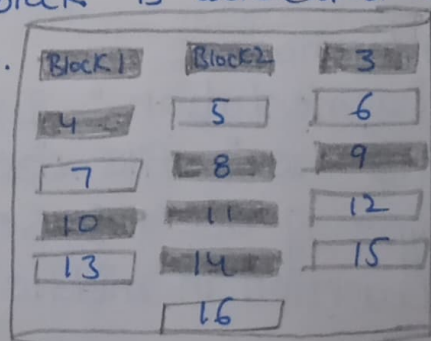 Block 1 Block 2 3
4 5 6
7 8 9
10 11 12
13 14 15
16